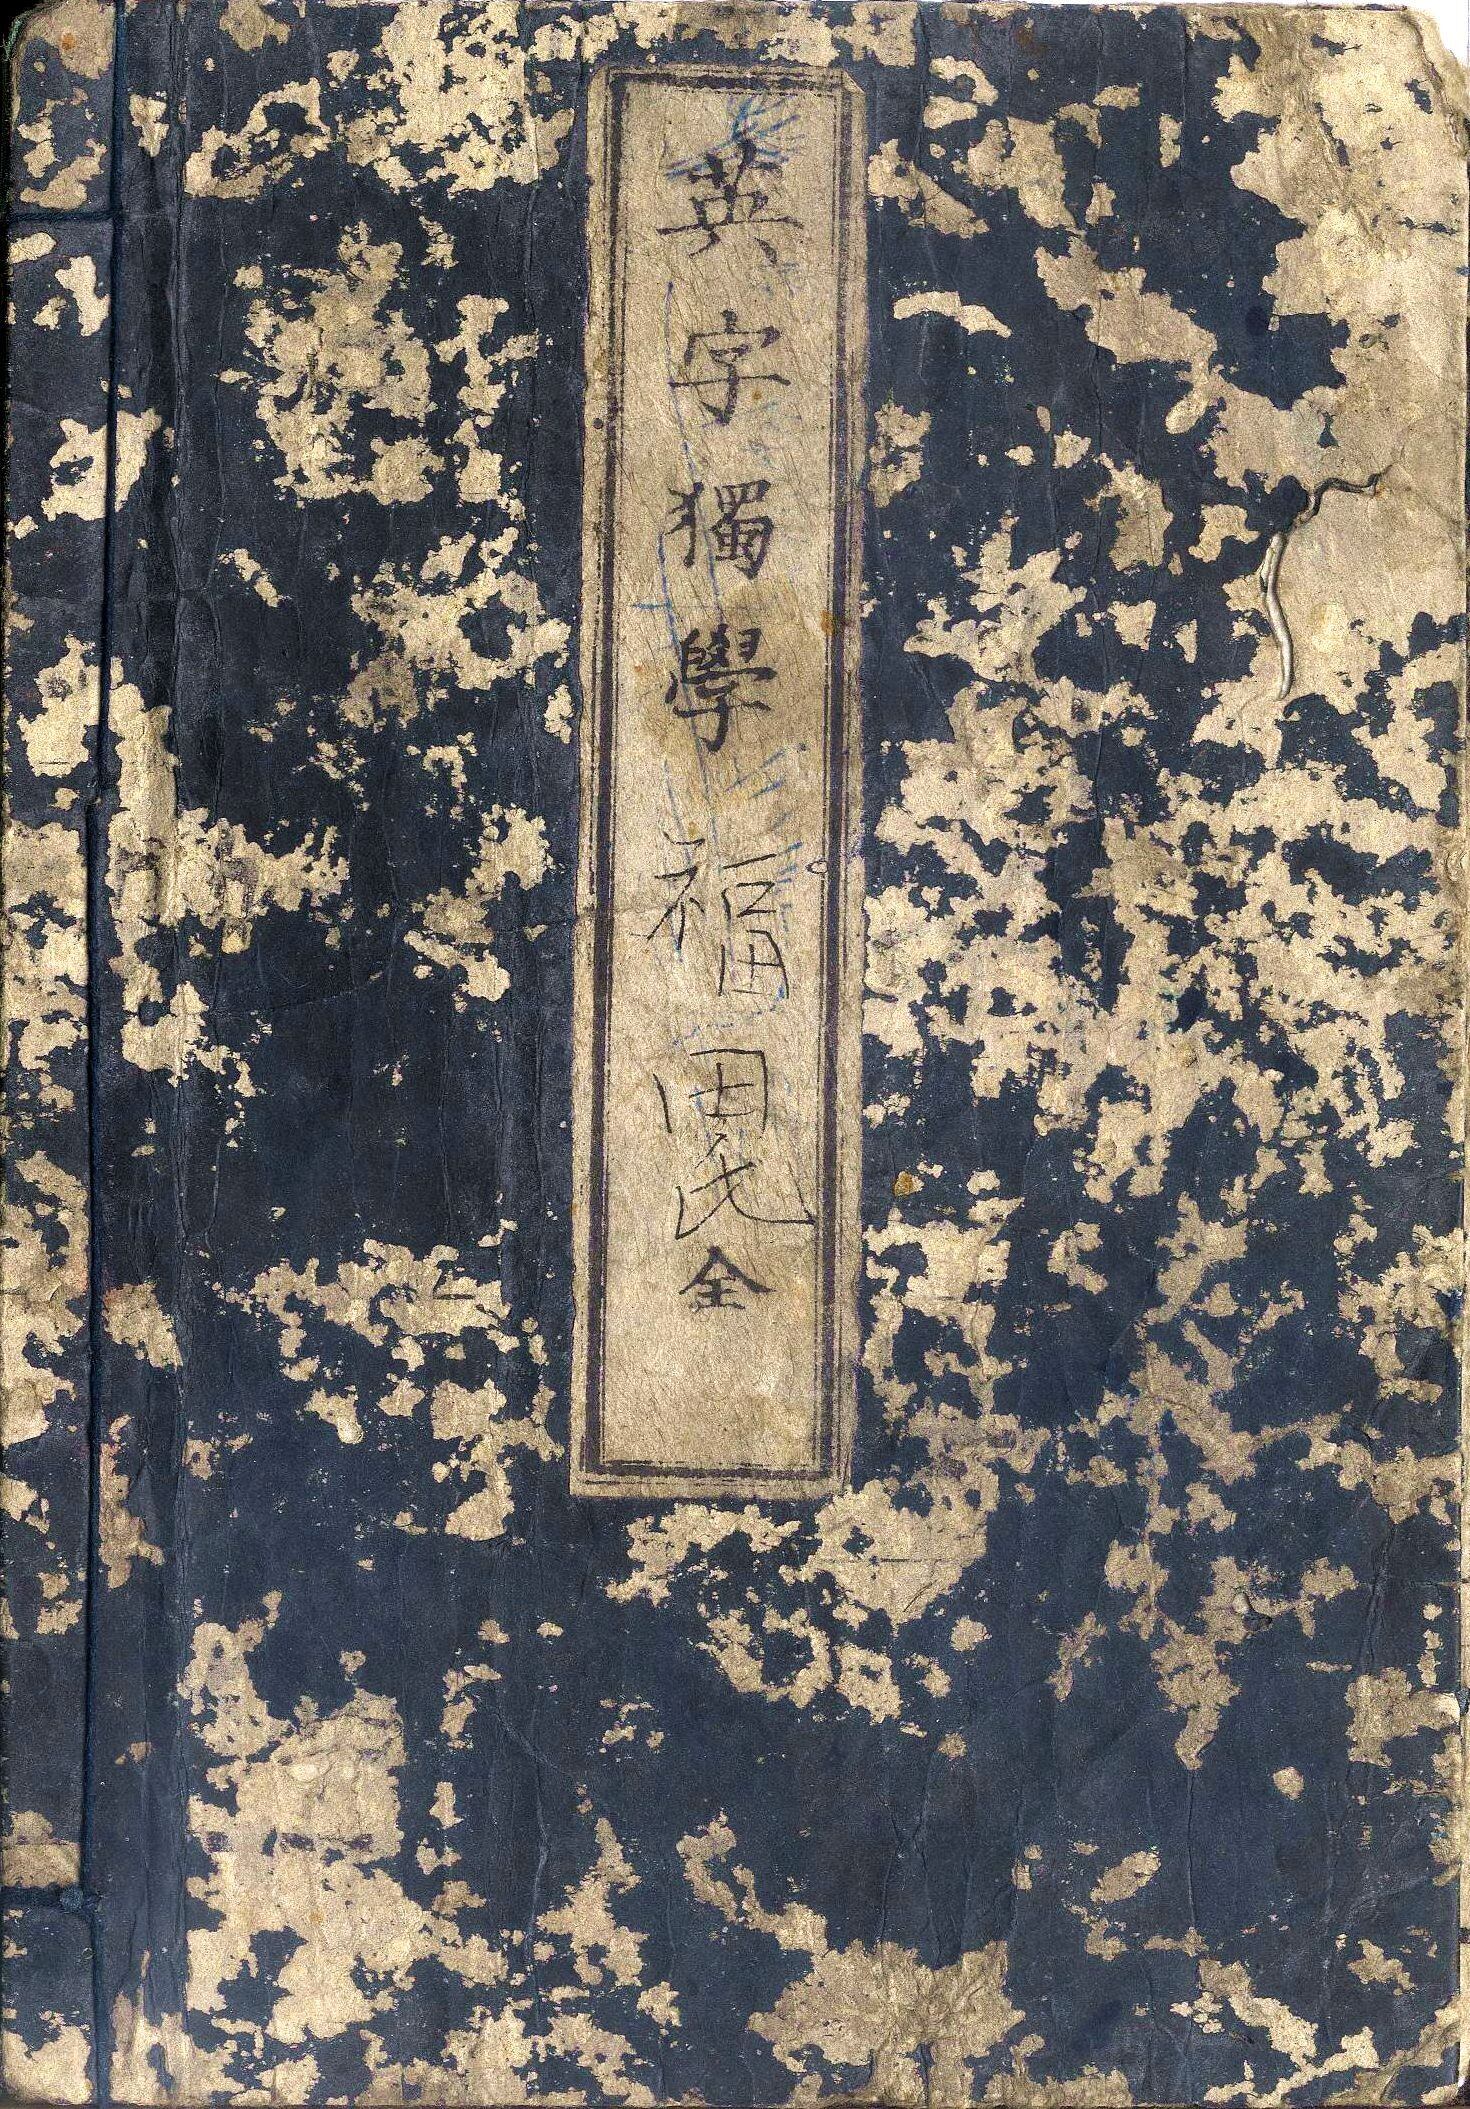 英字獨學 福田氏 全